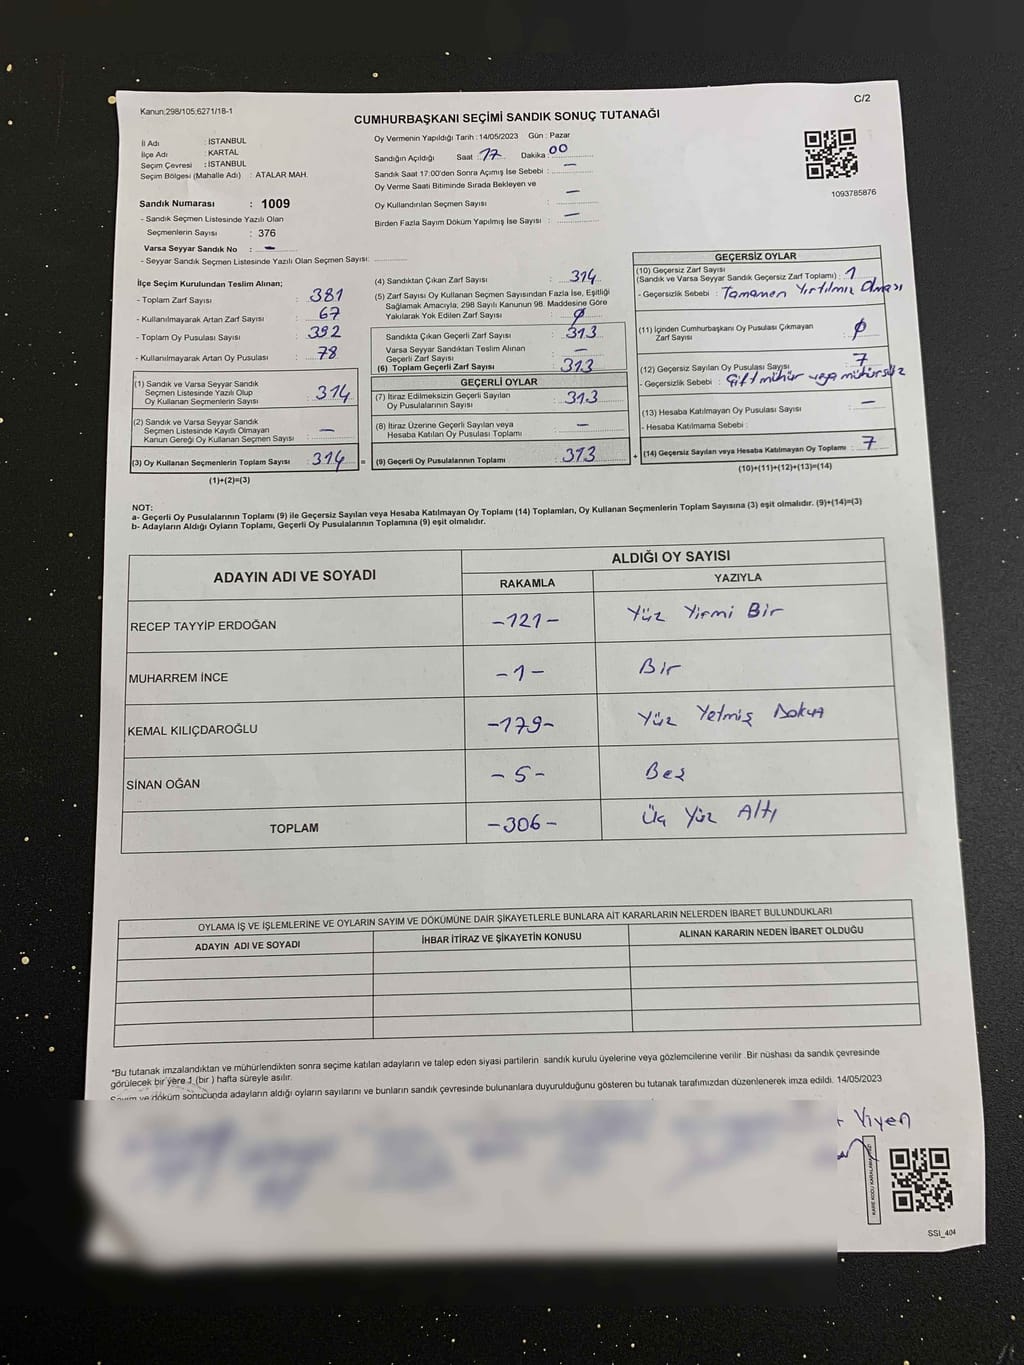 Kanun:298/105;6271/18-1
C/2
CUMHURBAŞKANI SEÇİMİ SANDIK SONUÇ TUTANAĞI
İl Adı : İSTANBUL
İlçe Adı : KARTAL
Seçim Çevresi : İSTANBUL
Seçim Bölgesi (Mahalle Adı) : ATALAR MAH.
Sandık Numarası : 1009
- Sandık Seçmen Listesinde Yazılı Olan
Seçmenlerin Sayısı : 376
Varsa Seyyar Sandık No : -
- Seyyar Sandık Seçmen Listesinde Yazılı Olan Seçmen Sayısı:
Oy Vermenin Yapıldığı Tarih : 14/05/2023 Gün : Pazar
Sandığın Açıldığı Saat : 17 Dakika : 00
Sandık Saat 17:00'den Sonra Açımış İse Sebebi : -
Oy Verme Saati Bitiminde Sırada Bekleyen ve
Oy Kullandırılan Seçmen Sayısı : -
Birden Fazla Sayım Döküm Yapılmış İse Sayısı : -
1093785876
İlçe Seçim Kurulundan Teslim Alınan;
- Toplam Zarf Sayısı : 381
- Kullanılmayarak Artan Zarf Sayısı : 67
- Toplam Oy Pusulası Sayısı : 392
- Kullanılmayarak Artan Oy Pusulası : 78
(1) Sandık ve Varsa Seyyar Sandık
Seçmen Listesinde Yazılı Olup
Oy Kullanan Seçmenlerin Sayısı : 314
(2) Sandık ve Varsa Seyyar Sandık
Seçmen Listesinde Kayıtlı Olmayan
Kanun Gereği Oy Kullanan Seçmen Sayısı : -
(3) Oy Kullanan Seçmenlerin Toplam Sayısı : 314
(1)+(2)=(3)
(4) Sandıktan Çıkan Zarf Sayısı : 314
(5) Zarf Sayısı Oy Kullanan Seçmen Sayısından Fazla İse, Eşitliği
Sağlamak Amacıyla; 298 Sayılı Kanunun 98. Maddesine Göre
Yakılarak Yok Edilen Zarf Sayısı : ∅
Sandıkta Çıkan Geçerli Zarf Sayısı : 313
Varsa Seyyar Sandıktan Teslim Alınan
Geçerli Zarf Sayısı : -
(6) Toplam Geçerli Zarf Sayısı : 313
GEÇERLİ OYLAR
(7) İtiraz Edilmeksizin Geçerli Sayılan
Oy Pusulalarının Sayısı : 313
(8) İtiraz Üzerine Geçerli Sayılan veya
Hesaba Katılan Oy Pusulası Toplamı : -
= (9) Geçerli Oy Pusulalarının Toplamı : 313
GEÇERSİZ OYLAR
(10) Geçersiz Zarf Sayısı
(Sandık ve Varsa Seyyar Sandık Geçersiz Zarf Toplamı) : 1
- Geçersizlik Sebebi : Tamamen Yırtılmış Olması
(11) İçinden Cumhurbaşkanı Oy Pusulası Çıkmayan
Zarf Sayısı : ∅
(12) Geçersiz Sayılan Oy Pusulası Sayısı : 7
- Geçersizlik Sebebi : Çift mühür veya mühürsüz
(13) Hesaba Katılmayan Oy Pusulası Sayısı : -
- Hesaba Katılmama Sebebi :
+ (14) Geçersiz Sayılan veya Hesaba Katılmayan Oy Toplamı : 7
(10)+(11)+(12)+(13)=(14)
NOT:
a- Geçerli Oy Pusulalarının Toplamı (9) ile Geçersiz Sayılan veya Hesaba Katılmayan Oy Toplamı (14) Toplamları, Oy Kullanan Seçmenlerin Toplam Sayısına (3) eşit olmalıdır. (9)+(14)=(3)
b- Adayların Aldığı Oyların Toplamı, Geçerli Oy Pusulalarının Toplamına (9) eşit olmalıdır.
ADAYIN ADI VE SOYADI ALDIĞI OY SAYISI
RAKAMLA YAZIYLA
RECEP TAYYİP ERDOĞAN -121- Yüz Yirmi Bir
MUHARREM İNCE -1- Bir
KEMAL KILIÇDAROĞLU -179- Yüz Yetmiş Dokuz
SİNAN OĞAN -5- Beş
TOPLAM -306- Üç Yüz Altı
OYLAMA İŞ VE İŞLEMLERİNE VE OYLARIN SAYIM VE DÖKÜMÜNE DAİR ŞİKAYETLERLE BUNLARA AİT KARARLARIN NELERDEN İBARET BULUNDUKLARI
ADAYIN ADI VE SOYADI İHBAR İTİRAZ VE ŞİKAYETİN KONUSU ALINAN KARARIN NEDEN İBARET OLDUĞU
*Bu tutanak imzalandıktan ve mühürlendikten sonra seçime katılan adayların ve talep eden siyasi partilerin sandık kurulu üyelerine veya gözlemcilerine verilir .Bir nüshası da sandık çevresinde
görülecek bir yere 1 (bir ) hafta süreyle asılır.
Sayım ve döküm sonucunda adayların aldığı oyların sayılarını ve bunların sandık çevresinde bulunanlara duyurulduğunu gösteren bu tutanak tarafımızdan düzenlenerek imza edildi. 14/05/2023
SSI_404